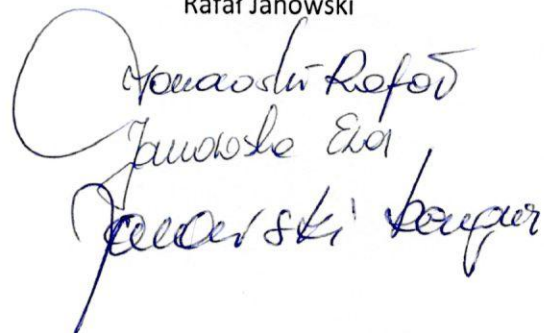 Rafał Janowski
Janowski Rafał
Janowska Ewa
Janowski